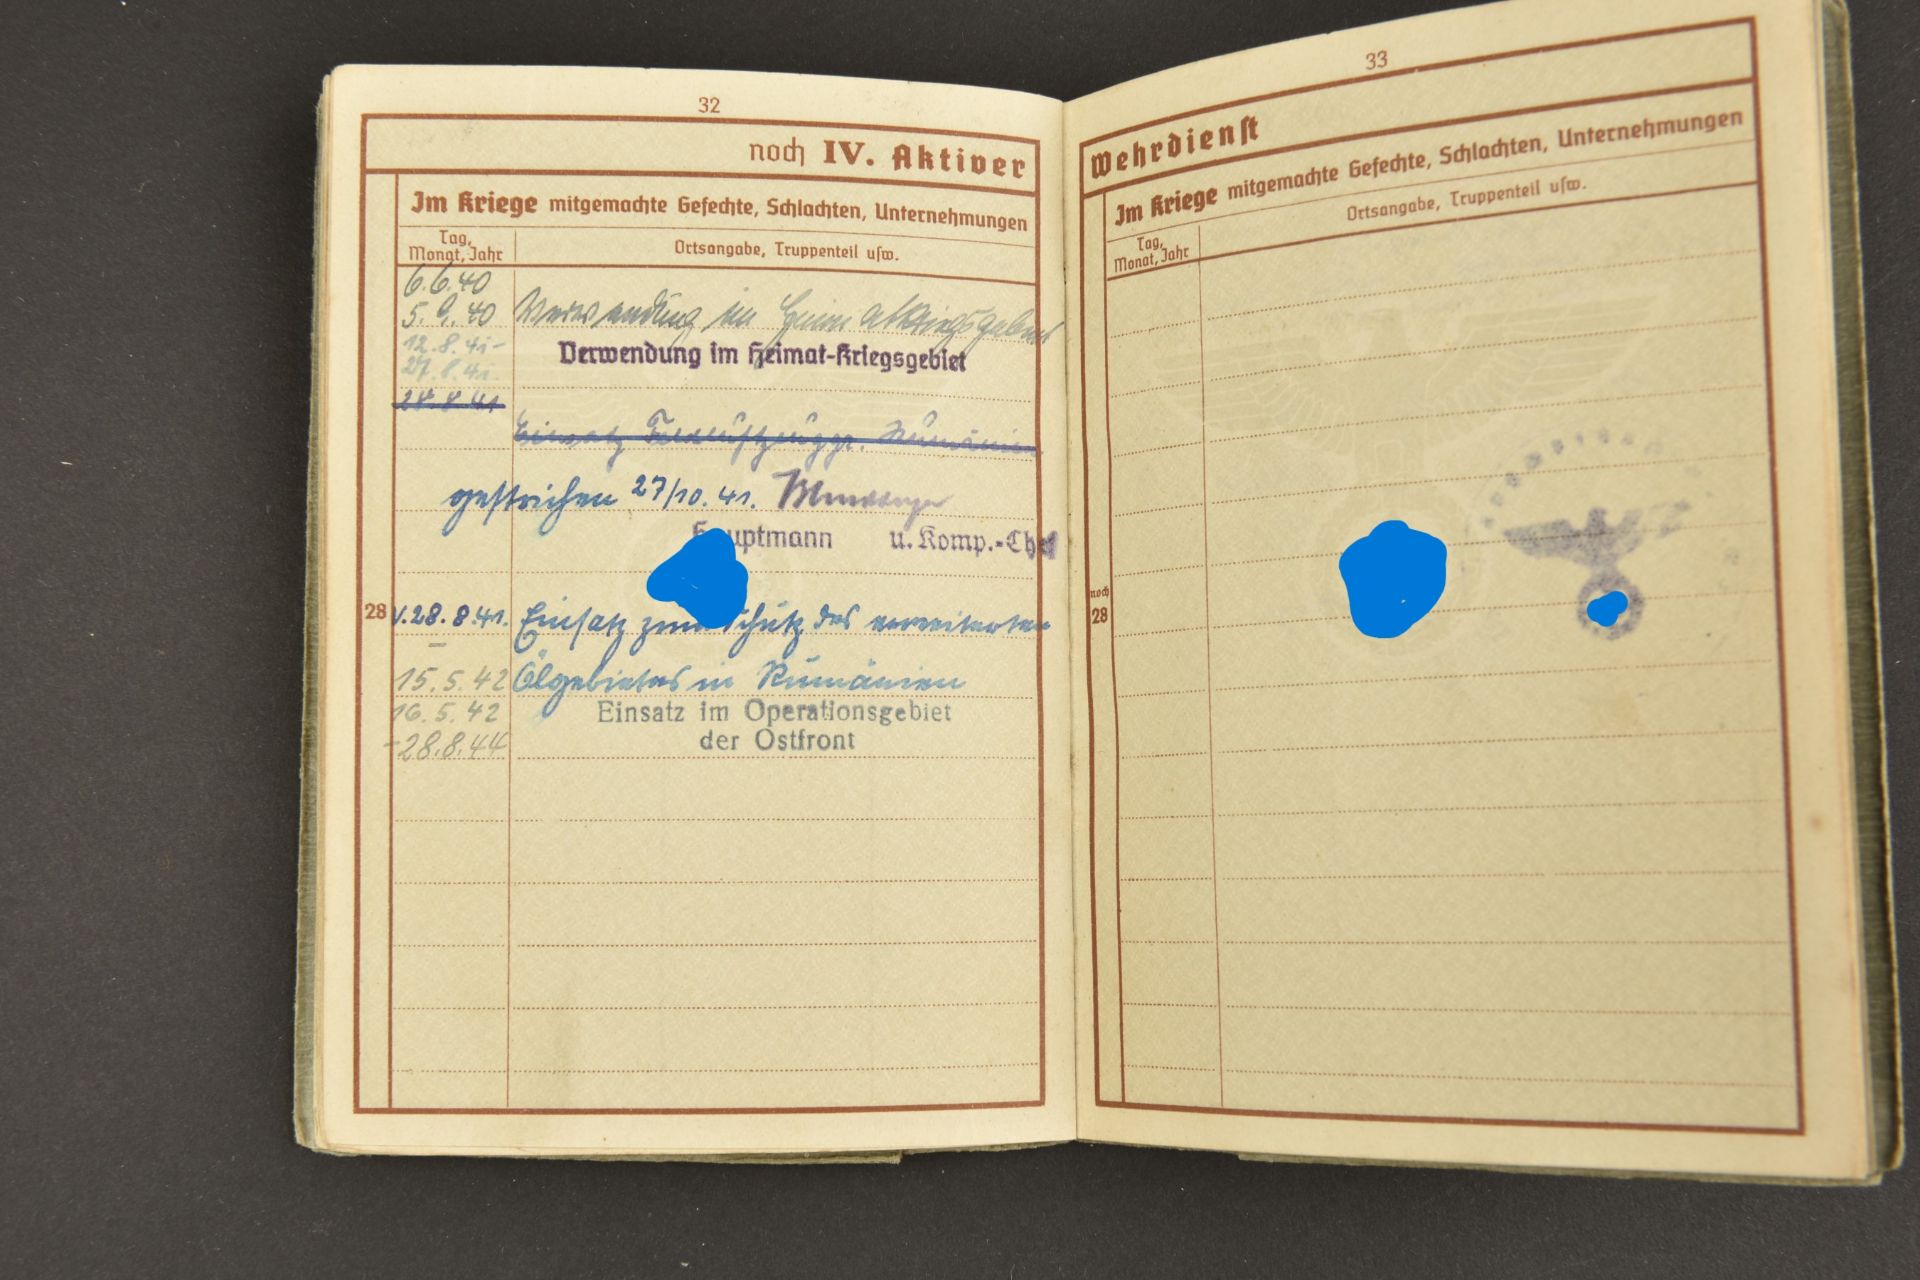 32
noch IV. Aktiver
Im Kriege mitgemachte Gefechte, Schlachten, Unternehmungen
Tag,
Monat, Jahr
Ortsangabe, Truppenteil usw.
6.6.40
5.9.40 Verwendung im Heimatkriegsgebiet
12.8.41-
27.8.41.
Verwendung im Heimat-Kriegsgebiet
28.8.41
Einsatz Rumänien
gestrichen 27/10.41.
Hauptmann u. Komp.-Chef
28 v.28.8.41. Einsatz zum Schutz des erweiterten
–
15.5.42 Ölgebietes in Rumänien
16.5.42 Einsatz im Operationsgebiet
-28.8.44 der Ostfront
33
Wehrdienst
Im Kriege mitgemachte Gefechte, Schlachten, Unternehmungen
Tag,
Monat, Jahr
Ortsangabe, Truppenteil usw.
noch
28